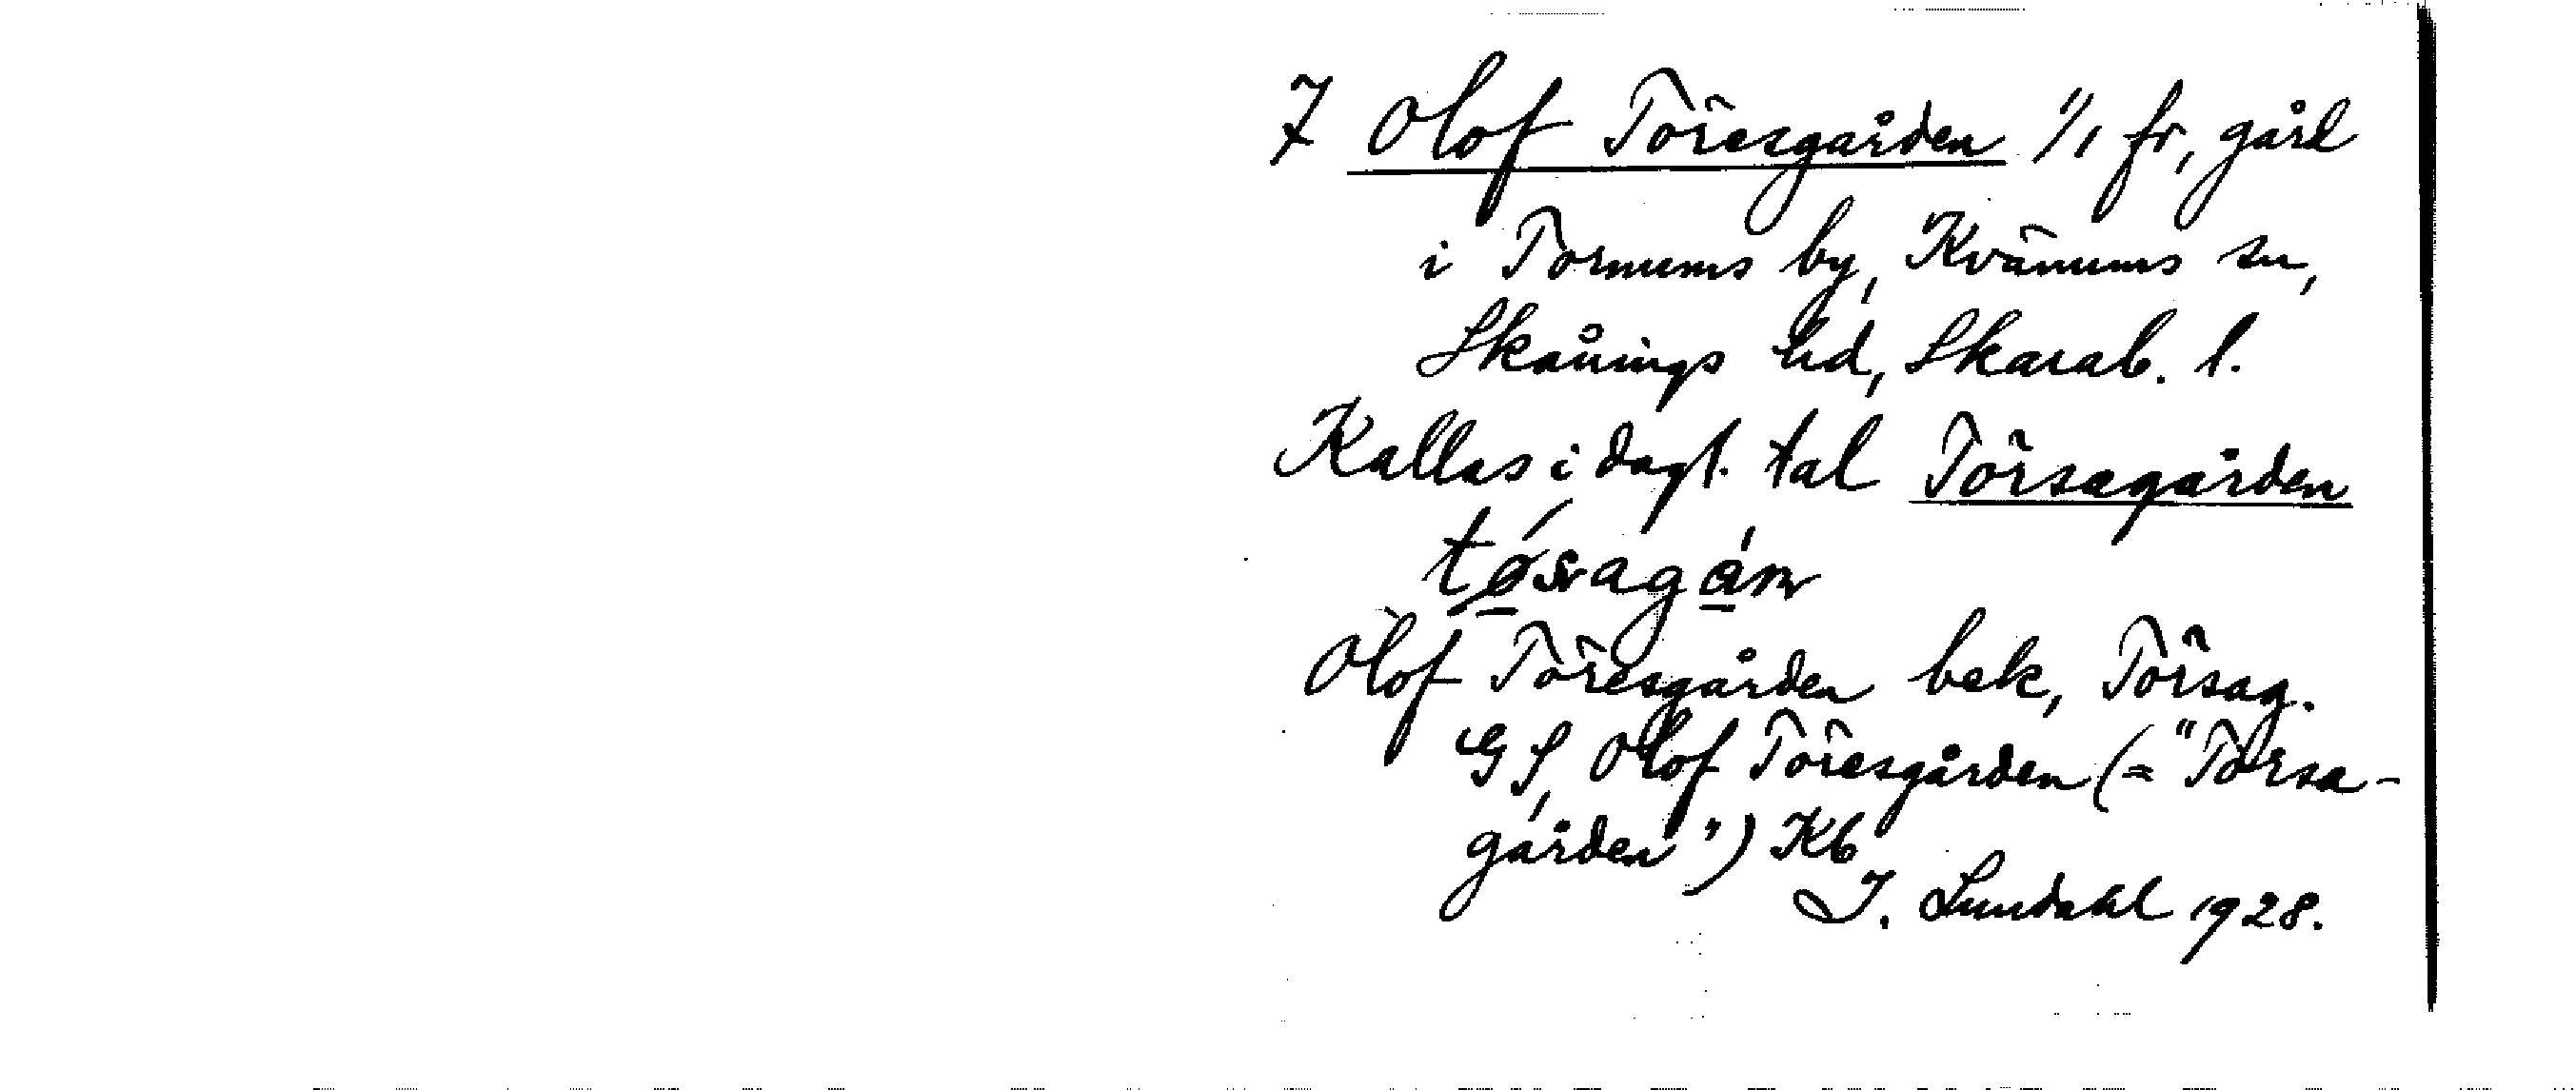 7 Olof Töresgården 1/1 fr, gård
i Tormums by, Kvänums sn,
Skånings hd, Skarab. l.
Kallas i dagl. tal Törsagården
Olof Töresgården bek, Törsag.
GS, Olof Töresgården (= "Törsa-
gården") Kb
I. Lundahl 1928.